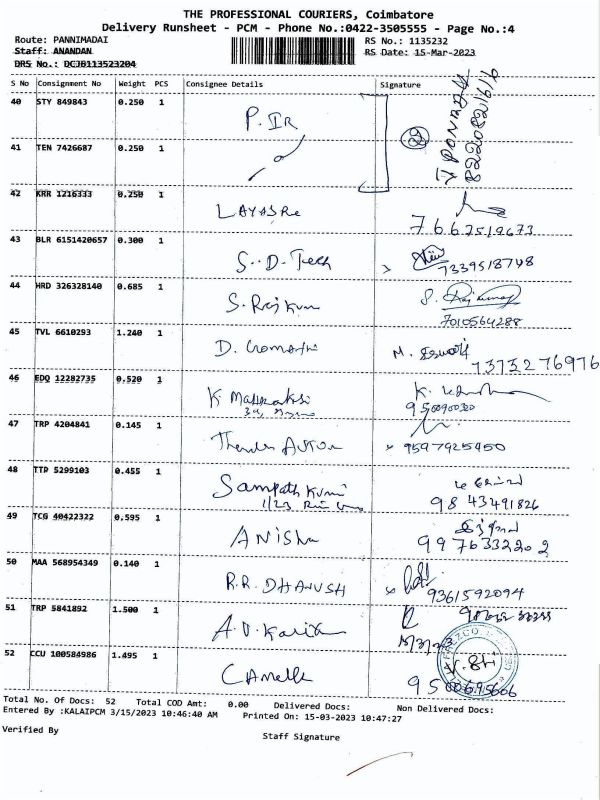 THE PROFESSIONAL COURIERS, Coimbatore
Delivery Runsheet - PCM - Phone No.:0422-3505555 - Page No.:4
Route: PANNIMADAI
RS No.: 1135232
Staff: ANANDAN
RS Date: 15-Mar-2023
DRS No.: DCJ0113523204
S No Consignment No Weight PCS Consignee Details Signature
40 STY 849843 0.250 1 P. IR
41 TEN 7426687 0.250 1
42 KRR 1216333 0.250 1 LAYASRe 7667519673
43 BLR 6151420657 0.300 1 S.. D. Tech 7339518748
44 HRD 326328140 0.685 1 S. Rajkum 7010564288
45 TVL 6610293 1.240 1 D. Gomathi M. 7373276976
46 EDQ 12282735 0.520 1 K. 9500900300
47 TRP 4204841 0.145 1 9597925450
48 TTP 5299103 0.455 1 Sampath Kumar 9843491826
49 TCG 40422322 0.595 1 ANISha 9976332202
50 MAA 568954349 0.140 1 R.R. DHANUSH 9361592094
51 TRP 5841892 1.500 1
52 CCU 100584986 1.495 1 9500695606
Total No. Of Docs: 52 Total COD Amt: 0.00 Delivered Docs: Non Delivered Docs:
Entered By :KALAIPCM 3/15/2023 10:46:40 AM Printed On: 15-03-2023 10:47:27
Verified By
Staff Signature